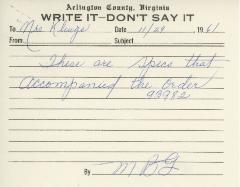 Arlington County, Virginia
WRITE IT—DON'T SAY IT
To Mrs Kluge Date 11/29 1961
From Subject
These are specs that
accompanied the order
93982
By MBG